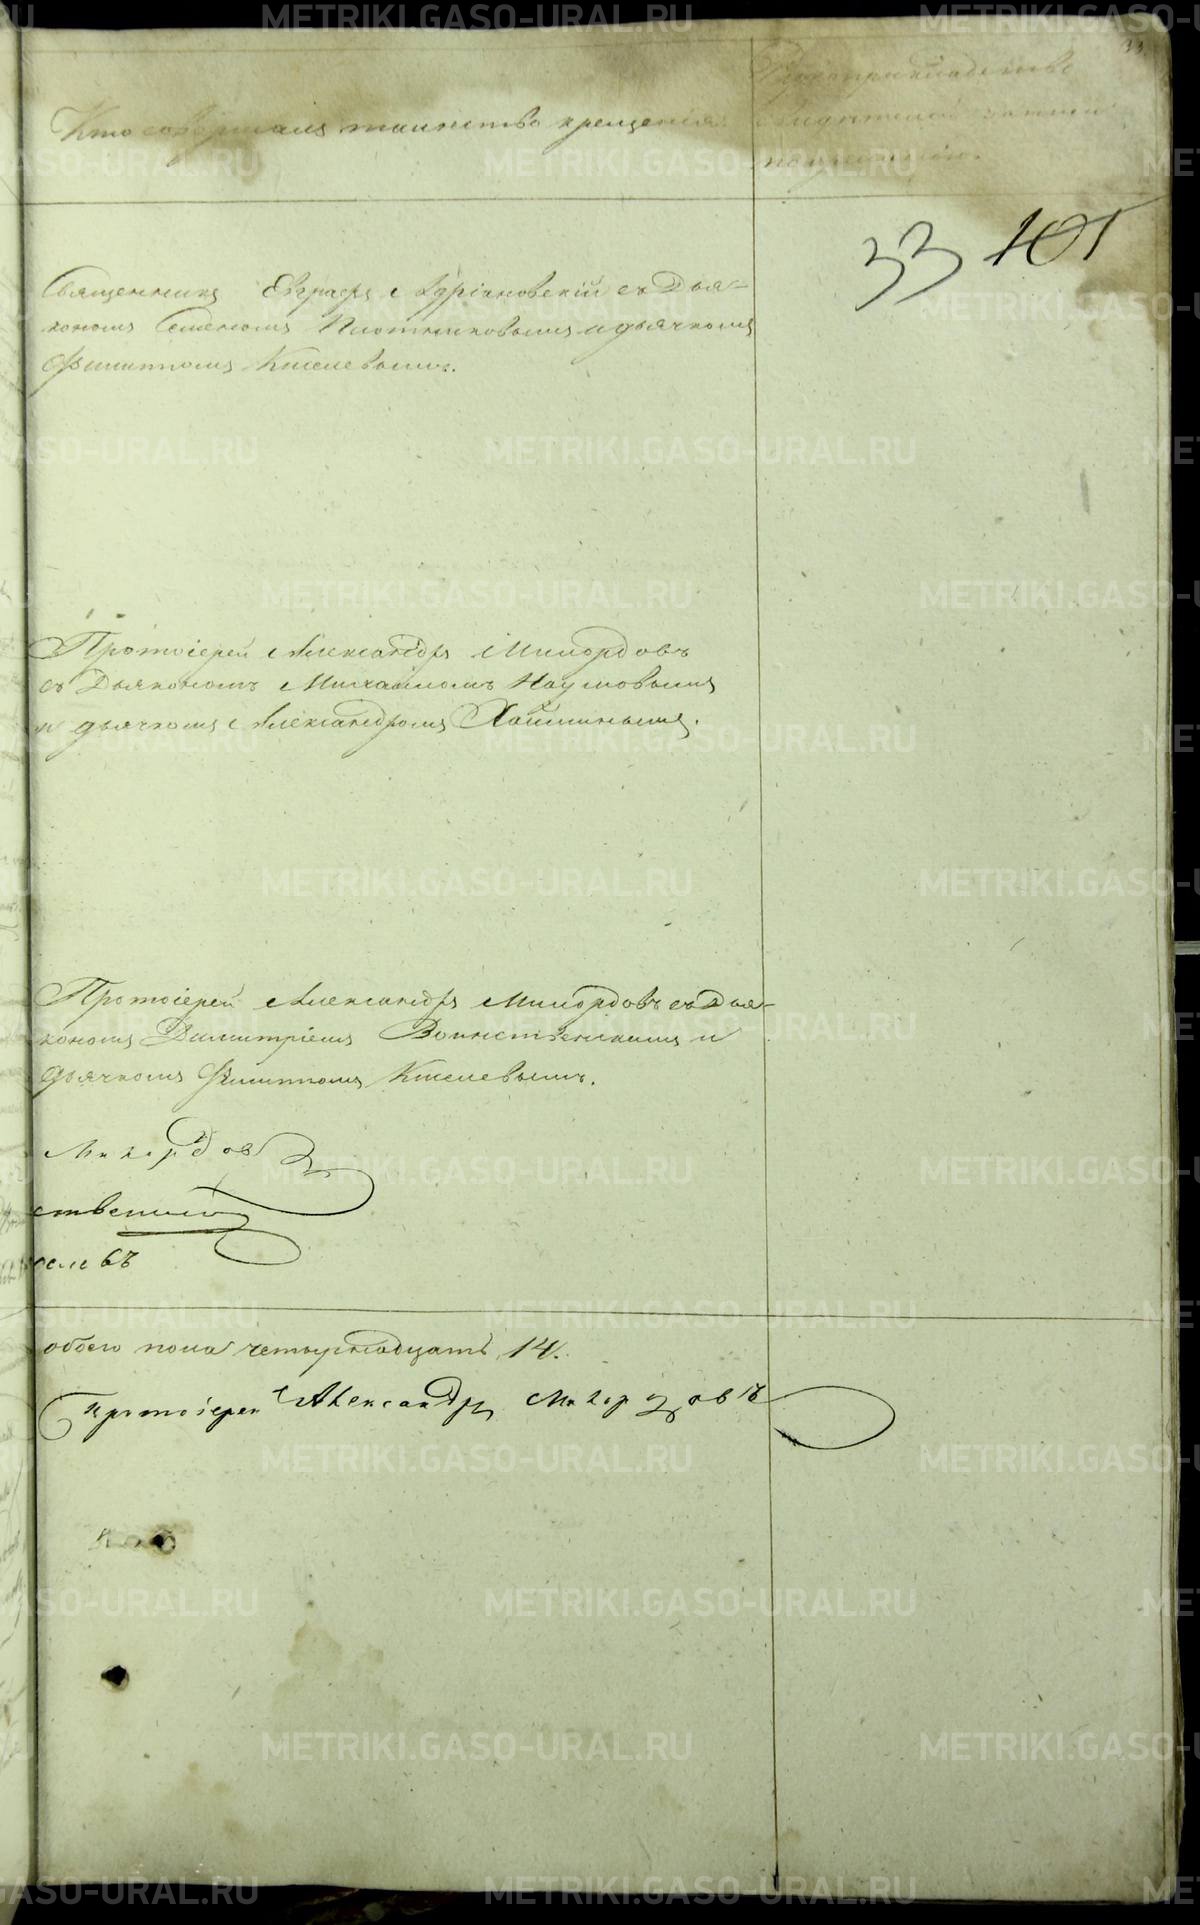 33
Кто совершалъ таинство крещенія.
Рукоприкладство
свидѣтелей записи
по желанію.
33 101
Священникъ Евграфъ Адріановскій съ Дья-
кономъ Семеномъ Плотниковымъ и дьячкомъ
Филиппомъ Киселевымъ.
Протоіерей Александръ Милордовъ
съ Дьякономъ Михаиломъ Наумовымъ
и дьячкомъ Александромъ
Протоіерей Александръ Милордовъ съ Дья-
кономъ Димитріемъ Воинственскимъ и
дьячкомъ Филиппомъ Киселевымъ.
Милордовъ
ственскій
селевъ
обоего пола четырнадцать 14.
Протоіерей Александръ Милордовъ
METRIKI.GASO-URAL.RU